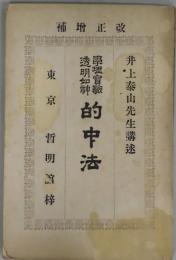 補增正改
井上泰山先生講述
學理實驗
透明如神
的中法
東京 哲明館梓